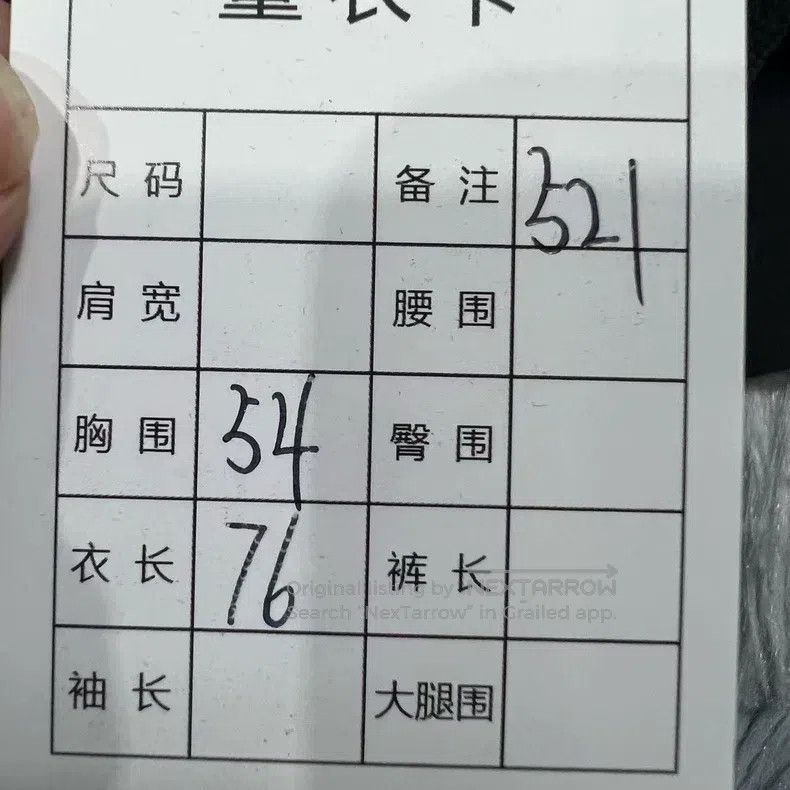 量衣卡
尺码 备注 521
肩宽 腰围
胸围 54 臀围
衣长 76 裤长
袖长 大腿围
Original listing by NEXTARROW
Search "NexTarrow" in Grailed app.